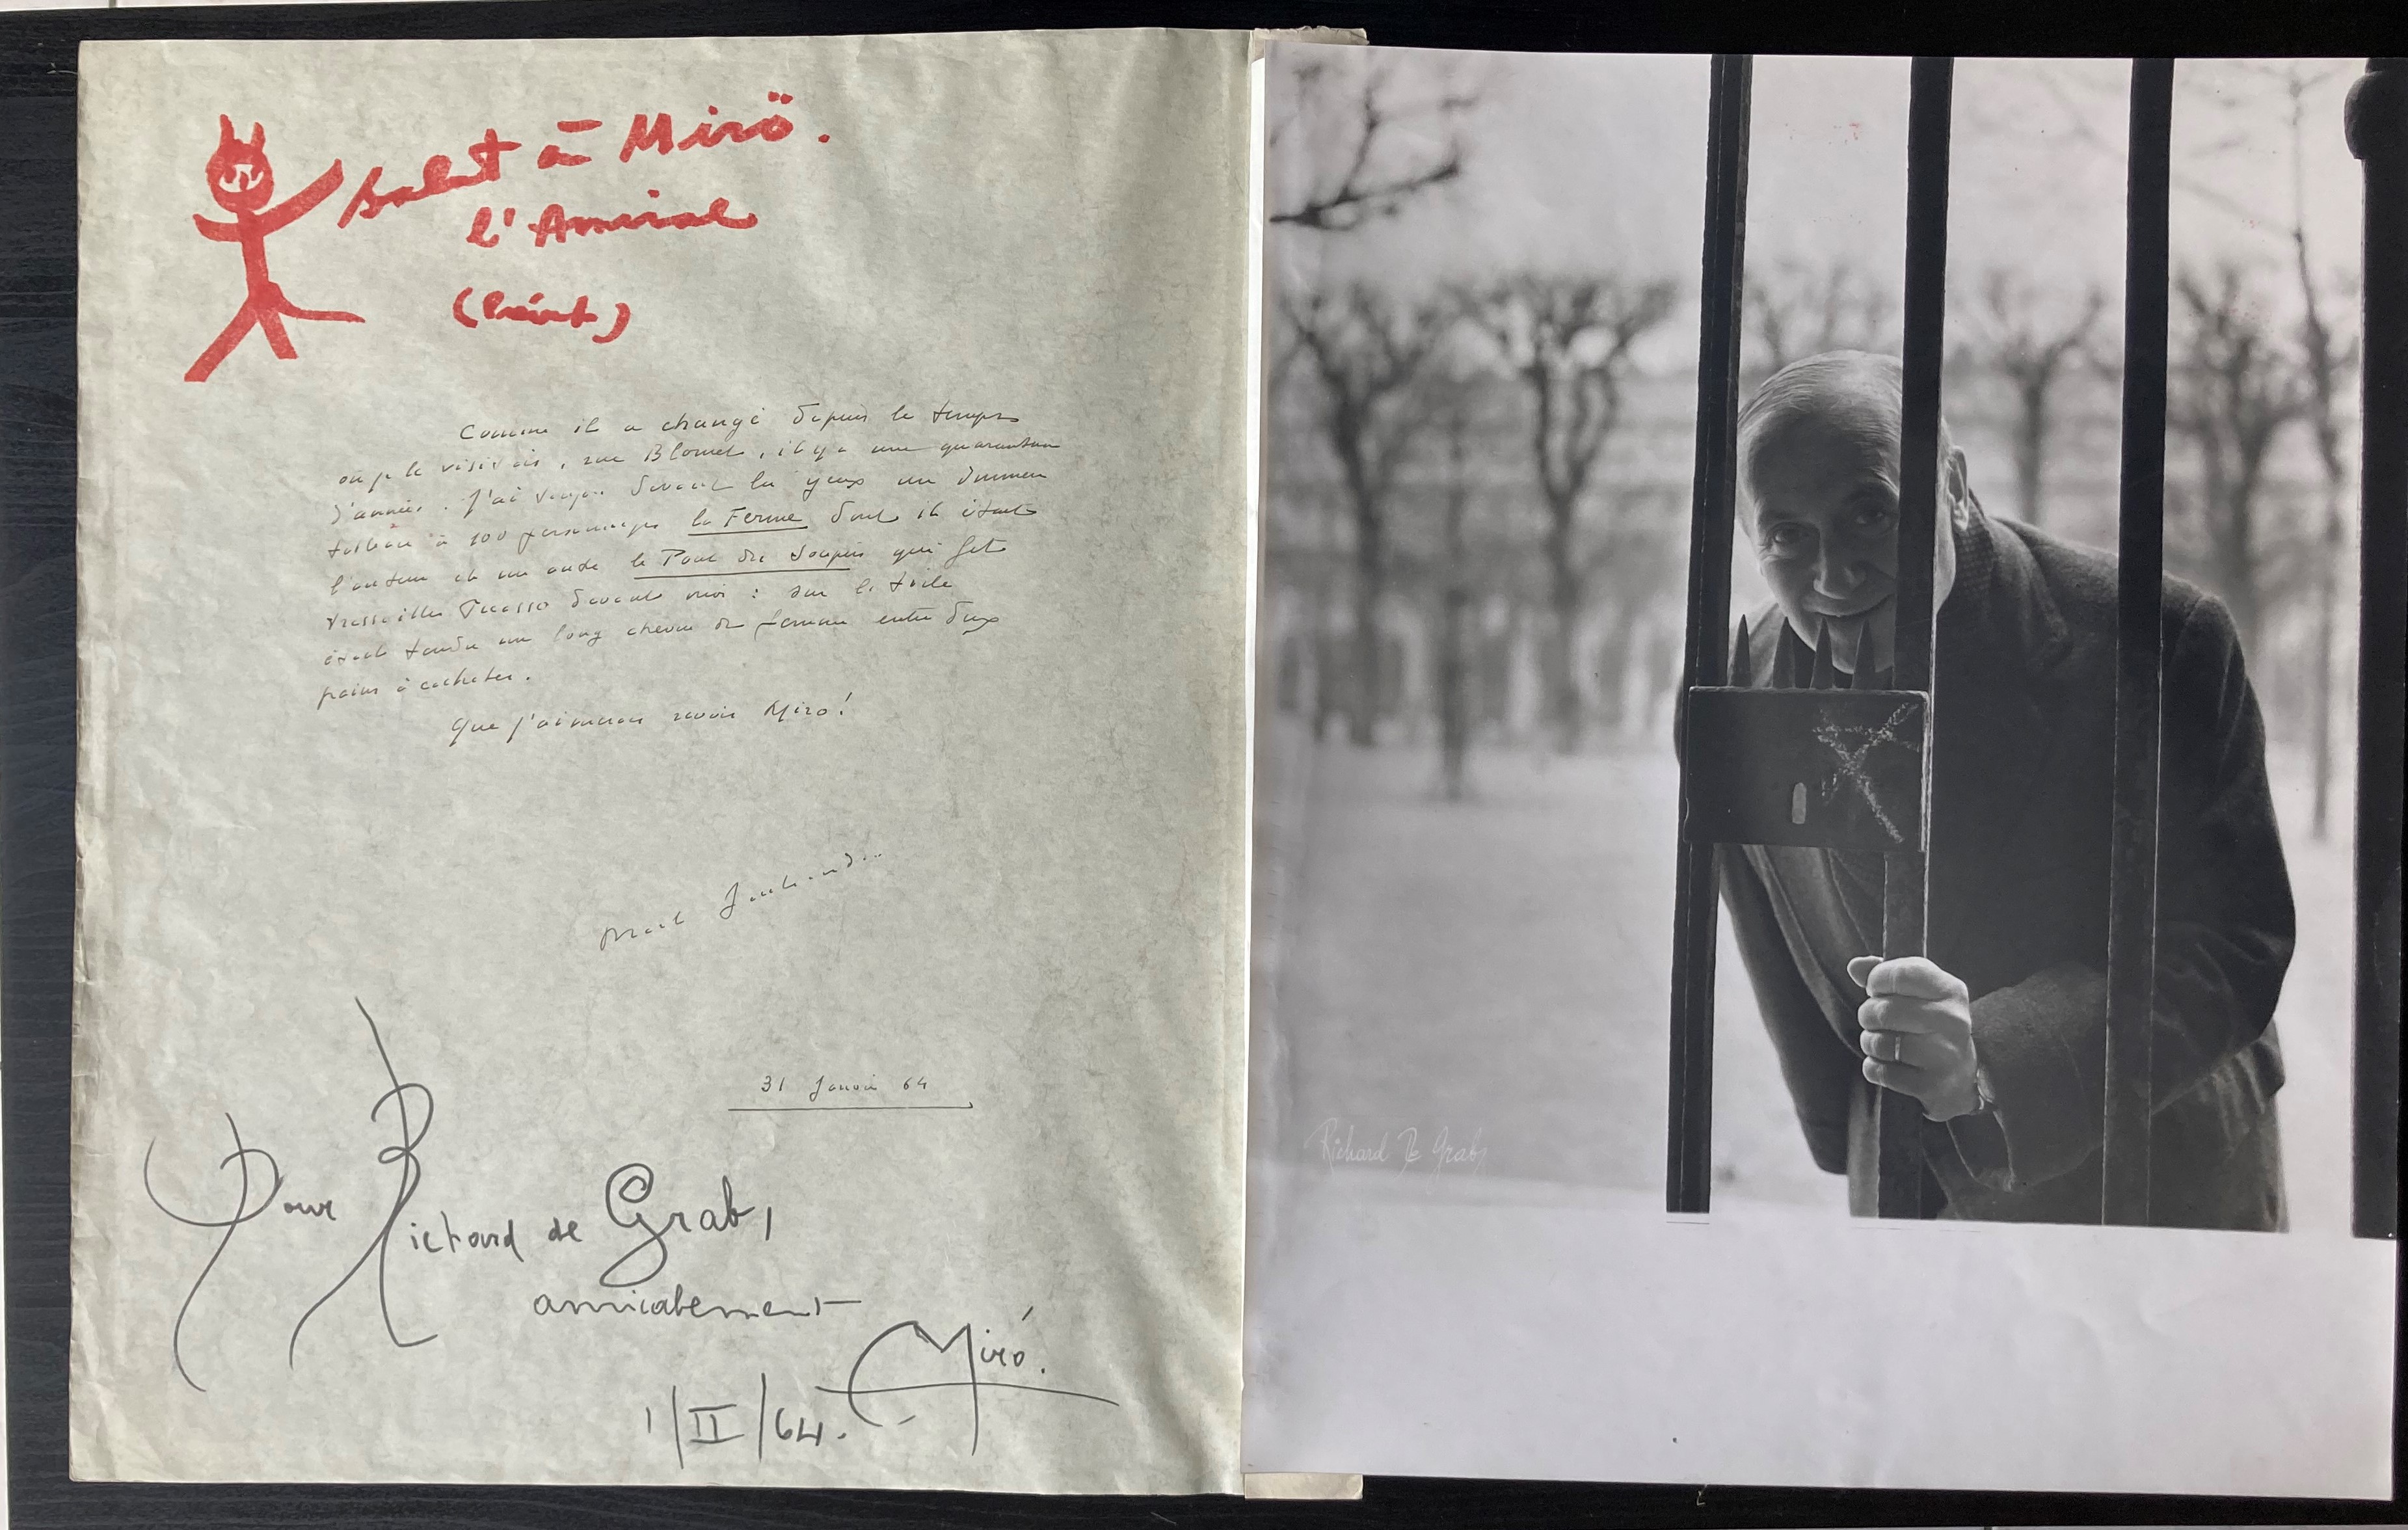 salut à Mirö.
l'Amiral
Comme il a changé depuis le temps
où je le visitais, rue Blomet, il y a une quarantaine
d'années. J'ai toujours devant les yeux un immense
tableau à 100 personnages la Ferme dont il était
l'auteur et un autre le Pont des Soupirs qui fit
tressaillir Picasso devant moi : sur la toile
était tendu un long cheveu de femme entre deux
pains à cacheter.
Que j'aimerais revoir Miro!
Marcel Jouhandeau
31 Janvier 64
Pour Richard de Grab,
amicalement
Miró.
1/II/64.
Richard De Grab